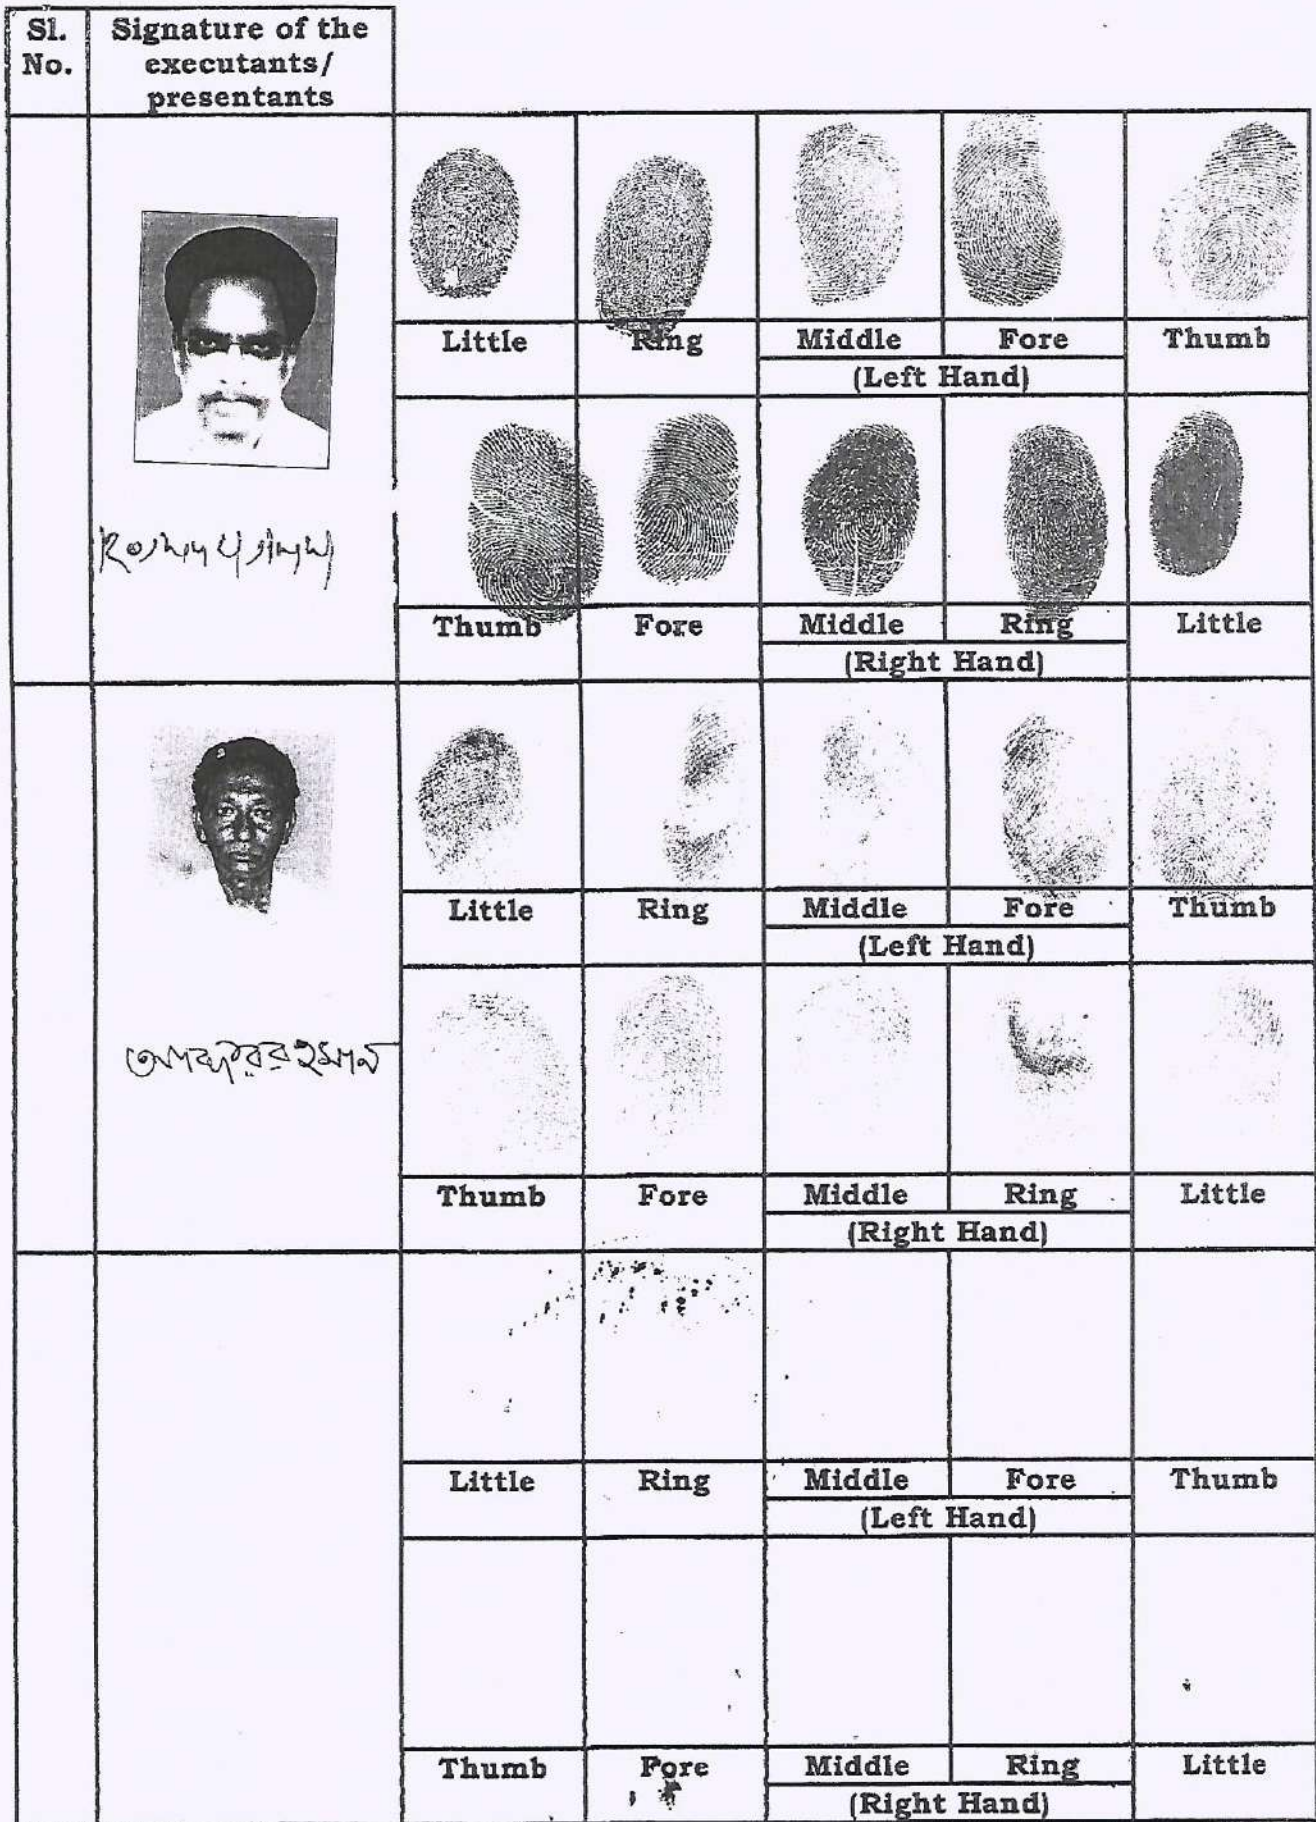 Sl. No.
Signature of the executants/ presentants
Little Ring Middle Fore Thumb
(Left Hand)
Thumb Fore Middle Ring Little
(Right Hand)
Little Ring Middle Fore Thumb
(Left Hand)
Thumb Fore Middle Ring Little
(Right Hand)
Little Ring Middle Fore Thumb
(Left Hand)
Thumb Fore Middle Ring Little
(Right Hand)